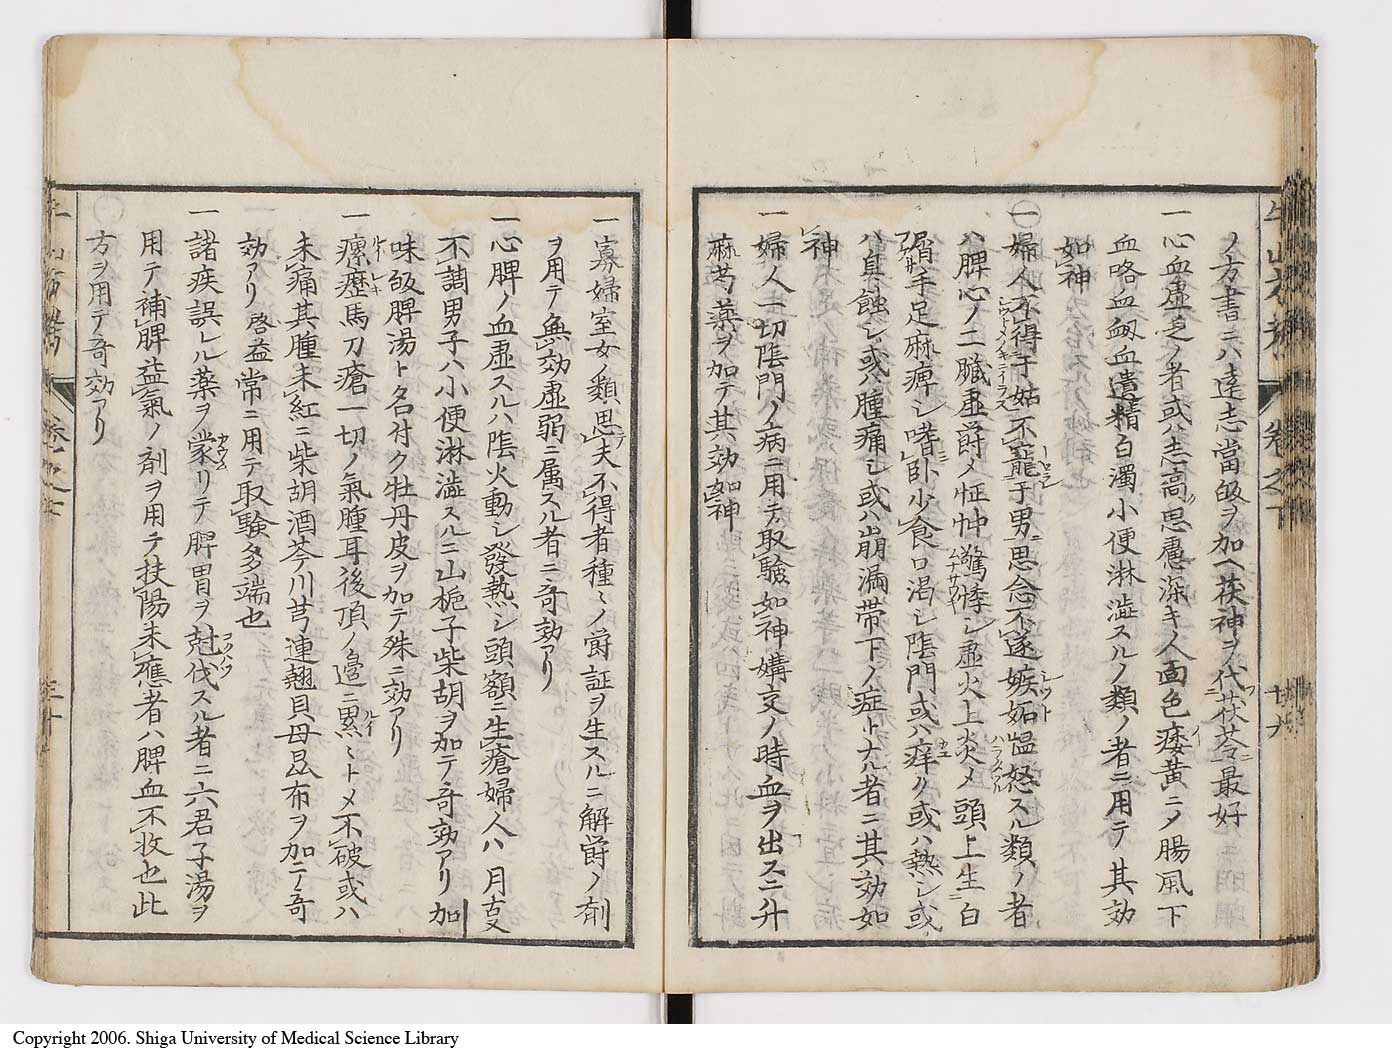 ノ方書ニハ遠志當皈ヲ加ヘ茯神ヲ代茯苓ニ最好
一心血虚乏ノ者或ハ志高思慮深キ人面色痿黄ニメ腸風下
血咯血衂血遺精白濁小便淋澁スルノ類ノ者ニ用テ其効
如神
一婦人不得于姑不寵于男思念不遂嫉妬愠怒スル類ノ者
ハ脾心ノ二臓虚欝メ怔忡驚悸シ虚火上炎メ頭上生白
屑手足麻痺シ嗜臥少食口渇シ陰門或ハ痒ク或ハ熱シ或
ハ自蝕シ或ハ腫痛シ或ハ崩漏帯下ノ症トナル者ニ其効如
神
一婦人一切陰門ノ病ニ用テ取驗如神媾交ノ時血ヲ出スニ升
麻芍薬ヲ加テ其効如神
牛山方考
卷之下
廿六
一寡婦室女ノ類思夫不得者種ミノ欝証ヲ生スルニ解欝ノ剤
ヲ用テ無効虚弱ニ属スル者ニ奇効アリ
一心脾ノ血虚スルハ陰火動シ發熱シ頭額ニ生瘡婦人ハ月事
不調男子ハ小便淋澁スルニ山梔子柴胡ヲ加テ奇効アリ加
味皈脾湯ト名付ク牡丹皮ヲ加テ殊ニ効アリ
一瘰癧馬刀瘡一切ノ氣腫耳後頂ノ邊ニ累ミトメ不破或ハ
未痛其腫未紅ニ柴胡酒芩川芎連翹貝母昆布ヲ加ニノ奇
効アリ啓益常ニ用テ取驗多端也
一諸疾誤レル薬ヲ蒙リテ脾胃ヲ尅伐スル者ニ六君子湯ヲ
用テ補脾益氣ノ剤ヲ用テ扶陽未應者ハ脾血不收也此
方ヲ用テ奇効アリ
Copyright 2006. Shiga University of Medical Science Library